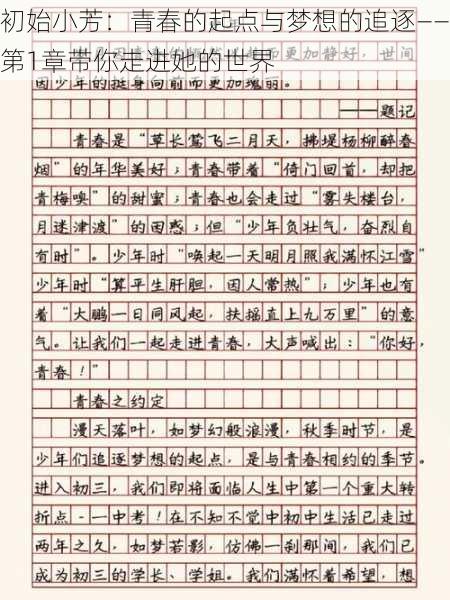 初始小芳：青春的起点与梦想的追逐——
第1章带你走进她的世界
因少年的挺身向前而更加瑰丽。
——题记
青春是“草长莺飞二月天，拂堤杨柳醉春
烟”的年华美好；青春带着“倚门回首，却把
青梅嗅”的甜蜜；青春也会走过“雾失楼台，
月迷津渡”的困惑；但“少年负壮气，奋烈自
有时”。少年时“唤起一天明月照我满怀江雪”
少年时“算平生肝胆，因人常热”；少年也有
着“大鹏一日同风起，扶摇直上九万里”的意
气。让我们一起走进青春，大声喊出：“你好，
青春！”
青春之约定
漫天落叶，如梦幻般浪漫，秋季时节，是
少年们追逐梦想的起点，是与青春相约的季节。
进入初三，我们即将面临人生中第一个重大转
折点--中考！在不知不觉中初中生活已走过
两年之久，如梦若影，仿佛一刹那间，我们已
成为初三的学长、学姐。我们满怀着希望，想